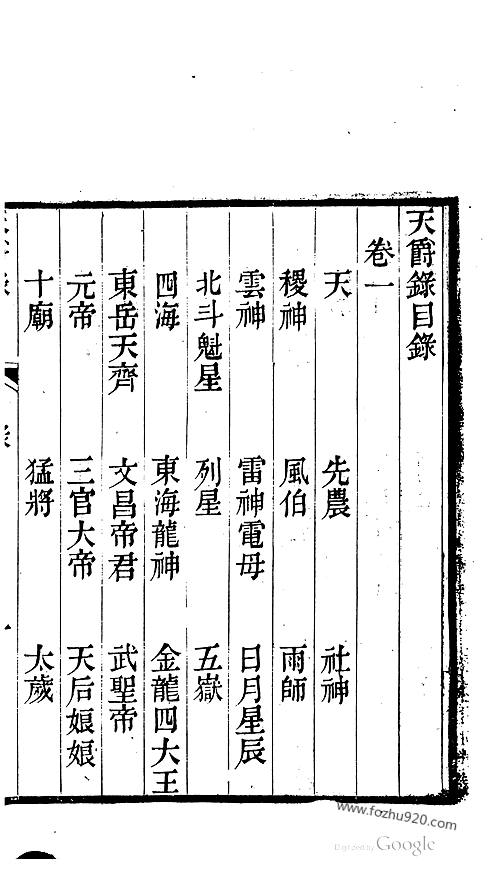 天爵錄目錄
卷一
天　先農　社神
稷神　風伯　雨師
雲神　雷神電母　日月星辰
北斗魁星　列星　五嶽
四海　東海龍神　金龍四大王
東岳天齊　文昌帝君　武聖帝
元帝　三官大帝　天后娘娘
十廟　猛將　太歲
www.fozhu920.com
Digitized by Google